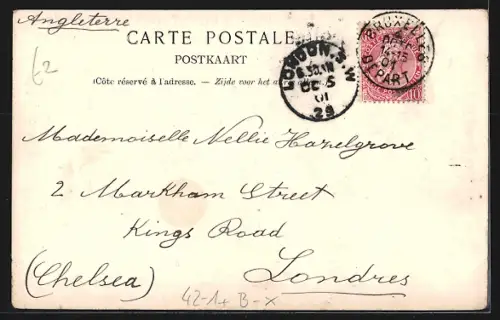 Angleterre
CARTE POSTALE
POSTKAART
(Côte réservé à l'adresse. — Zijde voor het
£2
LONDON. S.W
6.30AM
OC 5
01
29
BRUXELLES
01
DEPART
10
Mademoiselle Nellie Hazelgrove
2 Markham Street
Kings Road
(Chelsea) Londres
42-1+ B-x